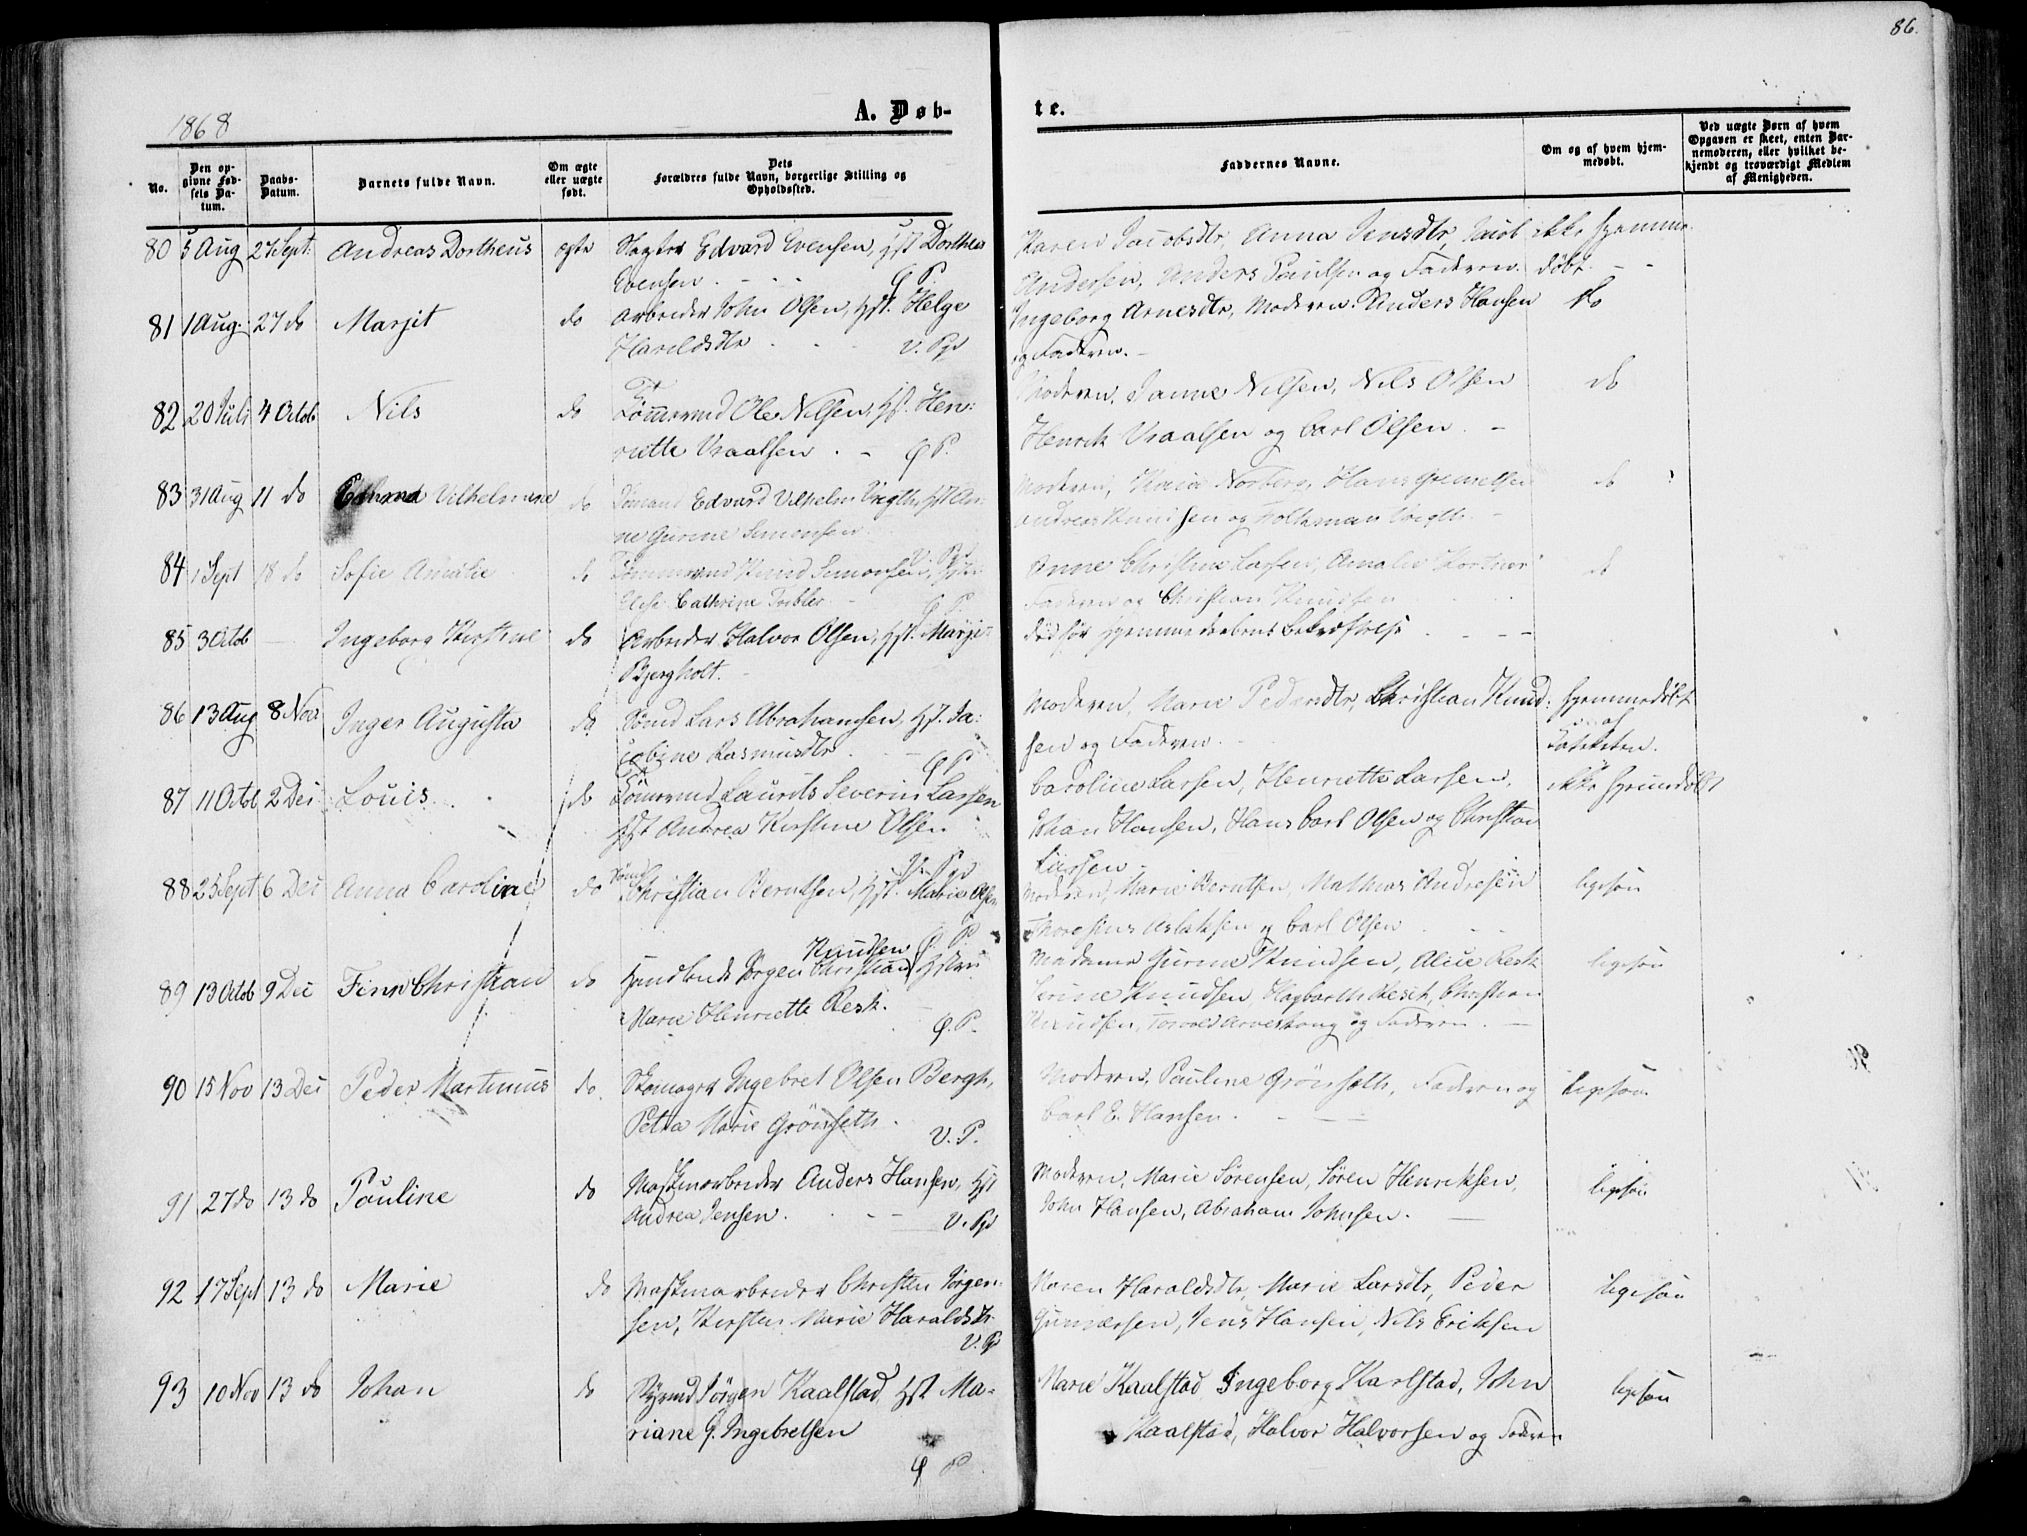 86.
1868
A. Døb-
te.
No.
Den op-
givne Fød-
sels Da-
tum.
Daabs-
Datum.
Barnets fulde Navn.
Om ægte
eller uægte
født.
Dets
Forældres fulde Navn, borgerlige Stilling og
Opholdssted.
Faddernes Navne.
Om og af hvem hjem-
medøbt.
Ved uægte Børn af hvem
Opgaven er skeet, enten Bar-
nemoderen, eller hvilket be-
kjendt og troværdigt Medlem
af Menigheden.
80 5 Aug 27 Sept: Andreas Dortheus ægte Edvard Evensen, Hst Dorthea
Evensen . Ø P.
Karen Jacobsdtr, Anna Jensdtr, Jacob ikke hjemme-
Andersen, Anders Paulsen og Faderen. døbt.
81 1 Aug. 27 do Marjit do Arbeider John Olsen, Hst. Helge
Haroldsdtr V. Pp
Ingeborg Arnesdtr, Moderen. Anders Hansen do
og Faderen.
82 20 Juli 4 Octob Nils do Tømmermd Ole Nilsen, Hst. Hen:
riette Vraalsen . Ø P.
Moderen, Janne Nilsen, Nils Olsen do
Henrik Vraalsen og Carl Olsen.
83 31 Aug 11 do Vilhelmine do Sømand Edvard Vilhelm Vogth, Hst An-
ne Gurine Simonsen. V. Pp
Moderen, Norberg, Hans do
Andreas Knudsen og Vogth.
84 1 Sept 18 do Sofie Amalie do Tømmermd Knud Simonsen, Hst.
Elise Cathrine Ø P.
Anne Christine Larsen, Amalie do
Faderen og Christian Knudsen
85 3 Octob Ingeborg Kirstine do Arbeider Halvor Olsen, Hst. Marjit
Bjergholt.
død før Hjemmedaabens Bekræftelse
86 13 Aug 8 Nov Inger Augusta do Sømd Lars Abrahamsen, Hst. Ja:
cobine Rasmusdtr . Ø P
Moderen, Marie Pedersdtr, Christian Knud: hjemmedøbt
sen og Faderen. af
87 11 Octob 2 Dec Louis. do Tømrmd Laurits Severin Larsen
Hst Andrea Kirstine Olsen V. Pp
Caroline Larsen, Henriette Larsen, ikke hjemdøbt
Johan Hansen, Hans Carl Olsen og Christian
Larsen
88 25 Sept 6 Dec Anna Caroline do Sømd Christian Berntsen, Hst. Marie Olsen
Ø. P.
Moderen, Marie Berntsen, Mathias Andresen ligesaa
Aslaksen og Carl Olsen
89 13 Octob 9 Dec Finn Christian do Handlende Jørgen Christian Knudsen Hstru
Marie Henriette Resch. Ø. P.
Madame Gurine Knudsen, Alice Resch ligesaa
Serine Knudsen, Hagbarth Resch, Christian
Knudsen, og Faderen.
90 15 Nov 13 Dec Peder Martinius do. Skomager Ingebret Olsen Bergh,
Petra Marie Grönseth. V. P.
Moderen, Pauline Grönseth, Faderen og ligesaa
Carl E. Hansen.
91 27 do 13 do Pauline do Maskinarbeider Anders Hansen, Hst
Andrea Jensen. V. Pp
Moderen, Marie Sörensen, Sören Henriksen, ligesaa
John Hansen, Abraham Johnsen.
92 17 Sept 13 do Marie do Maskinarbeider Christen Jörgen-
sen, Kirsten Marie Haraldsdtr V. Pp
Karen Haraldsdtr, Marie Larsdtr, Peder ligesaa
Gunnersen, Jens Hansen, Nils Eriksen
93 10 Nov 13 do Johan do Jörgen Kaalstad, Hst Ma-
riane G. Ingebretsen Ø P.
Marie Kaalstad, Ingeborg Karlstad, John ligesaa
Kaalstad, Halvor Halvorsen og Faderen